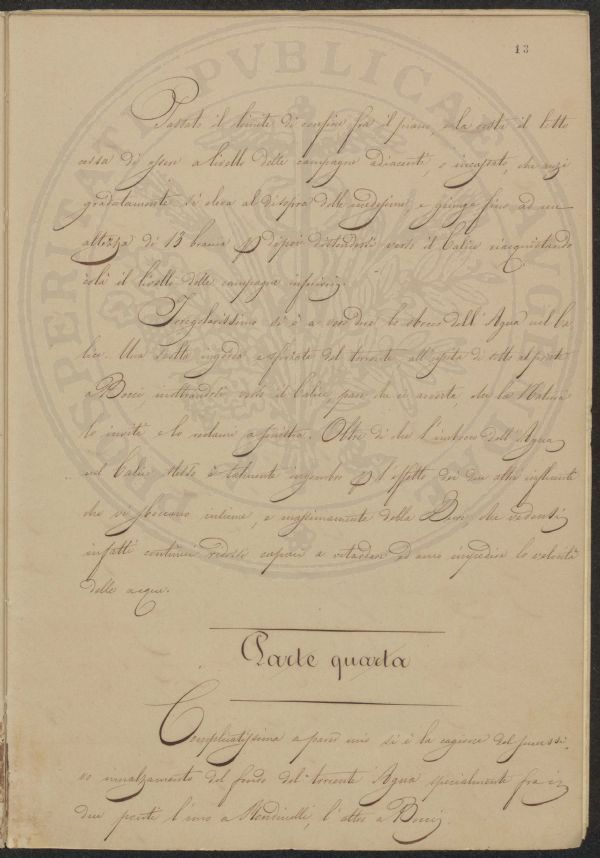 13
Passato il limite di confine fra il piano e la costa il letto
cessa di essere a livello delle campagne adiacenti, o incassato, che anzi
gradatamente si eleva al disopra delle medesime, e giunge fino ad un
altezza di 13 braccia p dipoi distendersi verso il Calice riacquistando
colà il livello delle campagne inferiori.
Irregolarissimo si è a vedere lo sbocco dell'Agna nel Ca-
lice. Una svolta
a Bocci, inoltrandosi verso il Calice, pare che ci avverta, che la Natura
lo invita e lo reclami a sinistra. Oltre di che l'imbocco dell'Agna
nel Calice stesso è talmente ingombro p l'effetto dei due altri influenti
che vi sboccano insieme, e massimamente della Bure che vedonsi
infatti continui ridossi capaci a ritardare ed anco impedire la velocità
delle acque.
Parte quarta
Complicatissima a parer mio si è la cagione del successi-
vo rinalzamento del fondo del torrente Agna specialmente fra i
due ponti l'uno a Mendinelli, l'altro a Bocci.